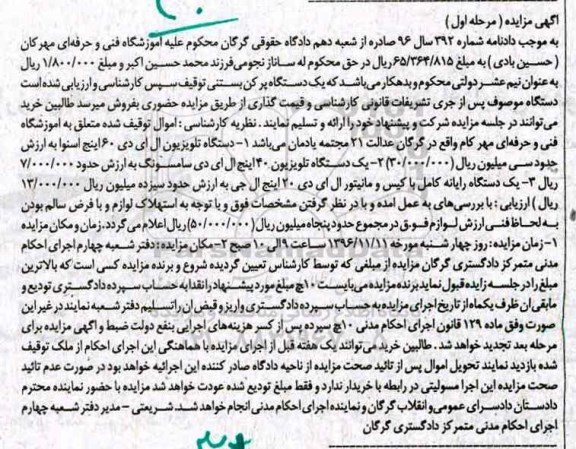 آگهی مزایده ( مرحله اول )
به موجب دادنامه شماره ۳۹۲ سال ۹۶ صادره از شعبه دهم دادگاه حقوقی گرگان محکوم علیه آموزشگاه فنی و حرفه‌ای مهرکان
( حسین بادی ) به مبلغ ۶۵/۳۶۴/۸۱۵ ریال در حق محکوم له ساناز نجومی فرزند محمد حسین اکبر و مبلغ ۱/۸۰۰/۰۰۰ ریال
به عنوان نیم عشر دولتی محکوم و بدهکار می‌باشد که یک دستگاه پرکن بستنی توقیف سپس کارشناسی و ارزیابی شده است
دستگاه موصوف پس از جری تشریفات قانونی کارشناسی و قیمت گذاری از طریق مزایده حضوری بفروش میرسد طالبین خرید
می‌توانند در جلسه مزایده شرکت و پیشنهاد خود را ارائه و تسلیم نمایند. نظریه کارشناسی : اموال توقیف شده متعلق به آموزشگاه
فنی و حرفه‌ای مهر کام واقع در گرگان عدالت ۲۱ مجتمه یادمان می‌باشد ۱- دستگاه تلویزیون ال ای دی ۶۰ اینچ اسنوا به ارزش
حدود سی میلیون ریال (۳۰/۰۰۰/۰۰۰) ۲- یک دستگاه تلویزیون ۴۰ اینچ ال ای دی سامسونگ به ارزش حدود ۷/۰۰۰/۰۰۰
ریال ۳- یک دستگاه رایانه کامل با کیس و مانیتور ال ای دی ۲۰ اینچ ال جی به ارزش حدود سیزده میلیون ریال ۱۳/۰۰۰/۰۰۰
ریال ) ارزیابی : با بررسی‌های به عمل آمده و با در نظر گرفتن مشخصات فوق و با توجه به استهلاک لوازم و با فرض سالم بودن
به لحاظ فنی ارزش لوازم فوق در مجموع حدود پنجاه میلیون ریال (۵۰/۰۰۰/۰۰۰) ریال اعلام می‌گردد. زمان و مکان مزایده
۱- زمان مزایده : روز چهار شنبه مورخه ۱۳۹۶/۱۱/۱۱ ساعت ۹ الی ۱۰ صبح ۲- مکان مزایده : دفتر شعبه چهارم اجرای احکام
مدنی متمرکز دادگستری گرگان مزایده از مبلغی که توسط کارشناس تعیین گردیده شروع و برنده مزایده کسی است که بالاترین
مبلغ را در جلسه زایده قبول نماید برنده مزایده می‌بایست ۱۰% مبلغ مورد پیشنهاد را نقدا به حساب سپرده دادگستری تودیع و
مابقی آن ظرف یکماه از تاریخ اجرای مزایده به حساب سپرده دادگستری واریز و قبض آن را تسلیم دفتر شعبه نمایند در غیر این
صورت وفق ماده ۱۲۹ قانون اجرای احکام مدنی ۱۰% سپرده پس از کسر هزینه‌های اجرایی بنفع دولت ضبط و آگهی مزایده برای
مرحله بعد تجدید خواهد شد . طالبین خرید می‌توانند یک هفته قبل از اجرای مزایده با هماهنگی این اجرای احکام از ملک توقیف
شده بازدید نمایند تحویل اموال پس از تائید صحت مزایده از ناحیه دادگاه صادر کننده این اجرائیه خواهد بود در صورت عدم تائید
صحت مزایده این اجرا مسولیتی در رابطه با خریدار ندارد و فقط مبلغ تودیع شده عودت خواهد شد مزایده با حضور نماینده محترم
دادستان دادسرای عمومی و انقلاب گرگان و نماینده اجرای احکام مدنی انجام خواهد شد. شریعتی - مدیر دفتر شعبه چهارم
اجرای احکام مدنی متمرکز دادگستری گرگان